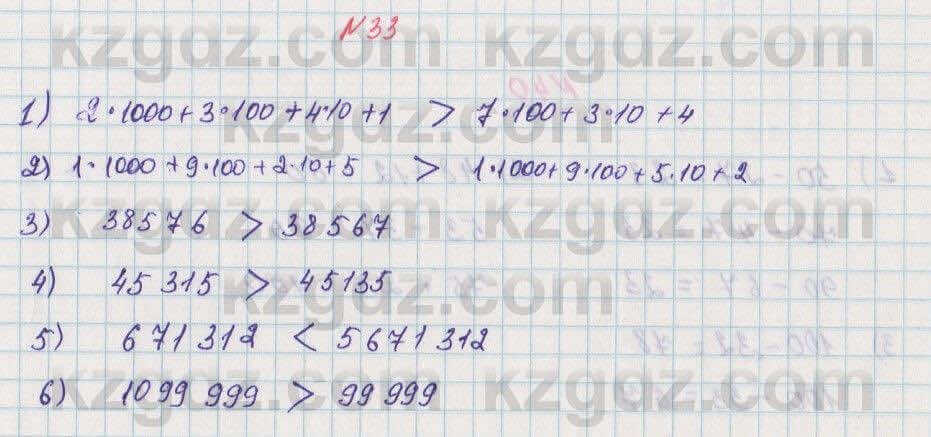 №33
1) 2·1000+3·100+4·10+1 > 7·100+3·10+4
2) 1·1000+9·100+2·10+5 > 1·1000+9·100+5·10+2
3) 38576 > 38567
4) 45 315 > 45135
5) 671 312 < 5 671 312
6) 1099 999 > 99 999
kzgdz.com
kzgdz.com
kzgdz.com
kzgdz.com
kzgdz.com
kzgdz.com